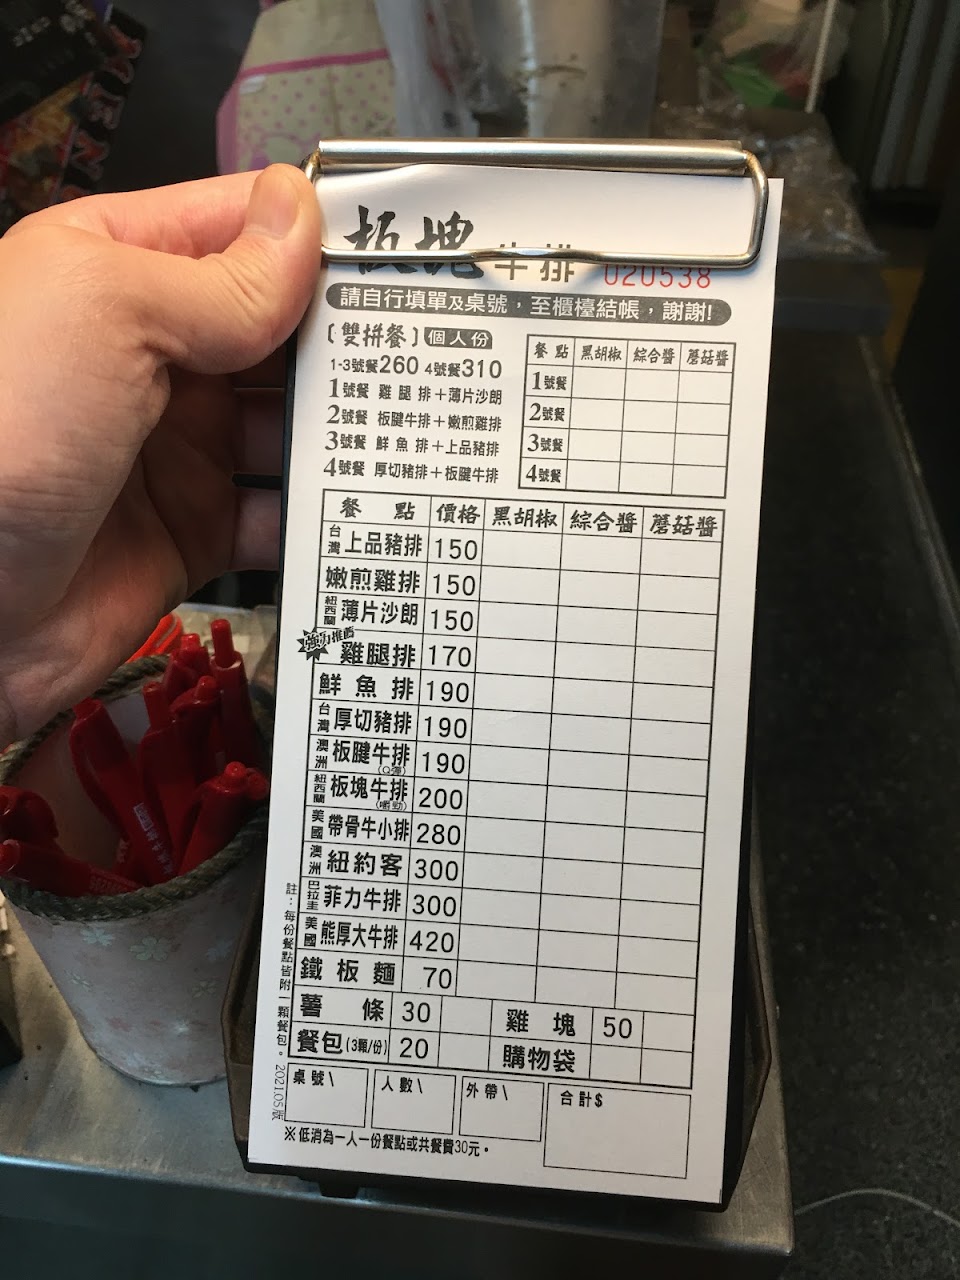 板塊牛排 020538
請自行填單及桌號，至櫃檯結帳，謝謝!
〔雙拼餐〕個人份
1-3號餐260 4號餐310
1號餐 雞腿排＋薄片沙朗
2號餐 板腱牛排＋嫩煎雞排
3號餐 鮮魚排＋上品豬排
4號餐 厚切豬排＋板腱牛排
餐點 黑胡椒 綜合醬 蘑菇醬
1號餐
2號餐
3號餐
4號餐
餐點 價格 黑胡椒 綜合醬 蘑菇醬
台灣 上品豬排 150
嫩煎雞排 150
紐西蘭 薄片沙朗 150
強力推薦 雞腿排 170
鮮魚排 190
台灣 厚切豬排 190
澳洲 板腱牛排 (Q彈) 190
紐西蘭 板塊牛排 (嚼勁) 200
美國 帶骨牛小排 280
澳洲 紐約客 300
巴拉圭 菲力牛排 300
美國 熊厚大牛排 420
鐵板麵 70
薯條 30 雞塊 50
餐包(3顆/份) 20 購物袋
桌號\ 人數\ 外帶\ 合計$
※低消為一人一份餐點或共餐費30元。
註：每份餐點皆附一顆餐包。202105版